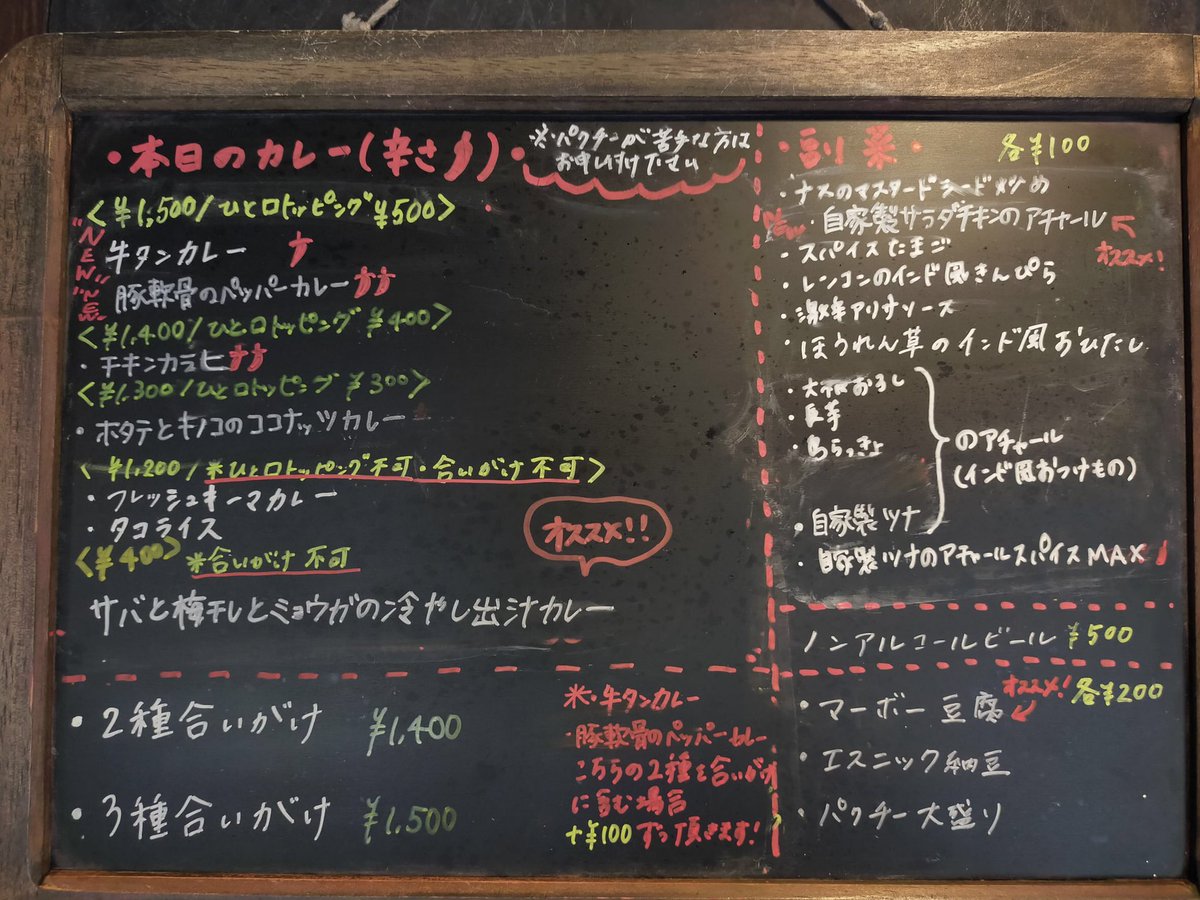 ・本日のカレー(辛さ)・
※パクチーが苦手な方は
お申し付け下さい
<¥1,500/ひと口トッピング¥500>
"NEW" 牛タンカレー
"NEW" 豚軟骨のペッパーカレー
<¥1,400/ひと口トッピング ¥400>
・チキンカラヒ
<¥1,300/ひと口トッピング ¥300>
・ホタテとキノコのココナッツカレー
<¥1,200/※ひと口トッピング不可・合いがけ不可>
・フレッシュキーマカレー
・タコライス
<¥400> ※合いがけ不可
オススメ!!
サバと梅干しとミョウガの冷やし出汁カレー
・2種合いがけ ¥1,400
・3種合いがけ ¥1,500
※・牛タンカレー
・豚軟骨のペッパーカレー
こちらの2種を合いがけ
に含む場合
+¥100ずつ頂きます!
・副菜・ 各¥100
・ナスのマスタードシード炒め
NEW・自家製サラダチキンのアチャール
オススメ!
・スパイスたまご
・レンコンのインド風きんぴら
・激辛アリサソース
・ほうれん草のインド風おひたし
・大根おろし
・長芋
・島らっきょ
・自家製ツナ
のアチャール
(インド風おつけもの)
・自家製ツナのアチャールスパイスMAX
ノンアルコールビール ¥500
オススメ! 各¥200
・マーボー豆腐
・エスニック納豆
・パクチー大盛り